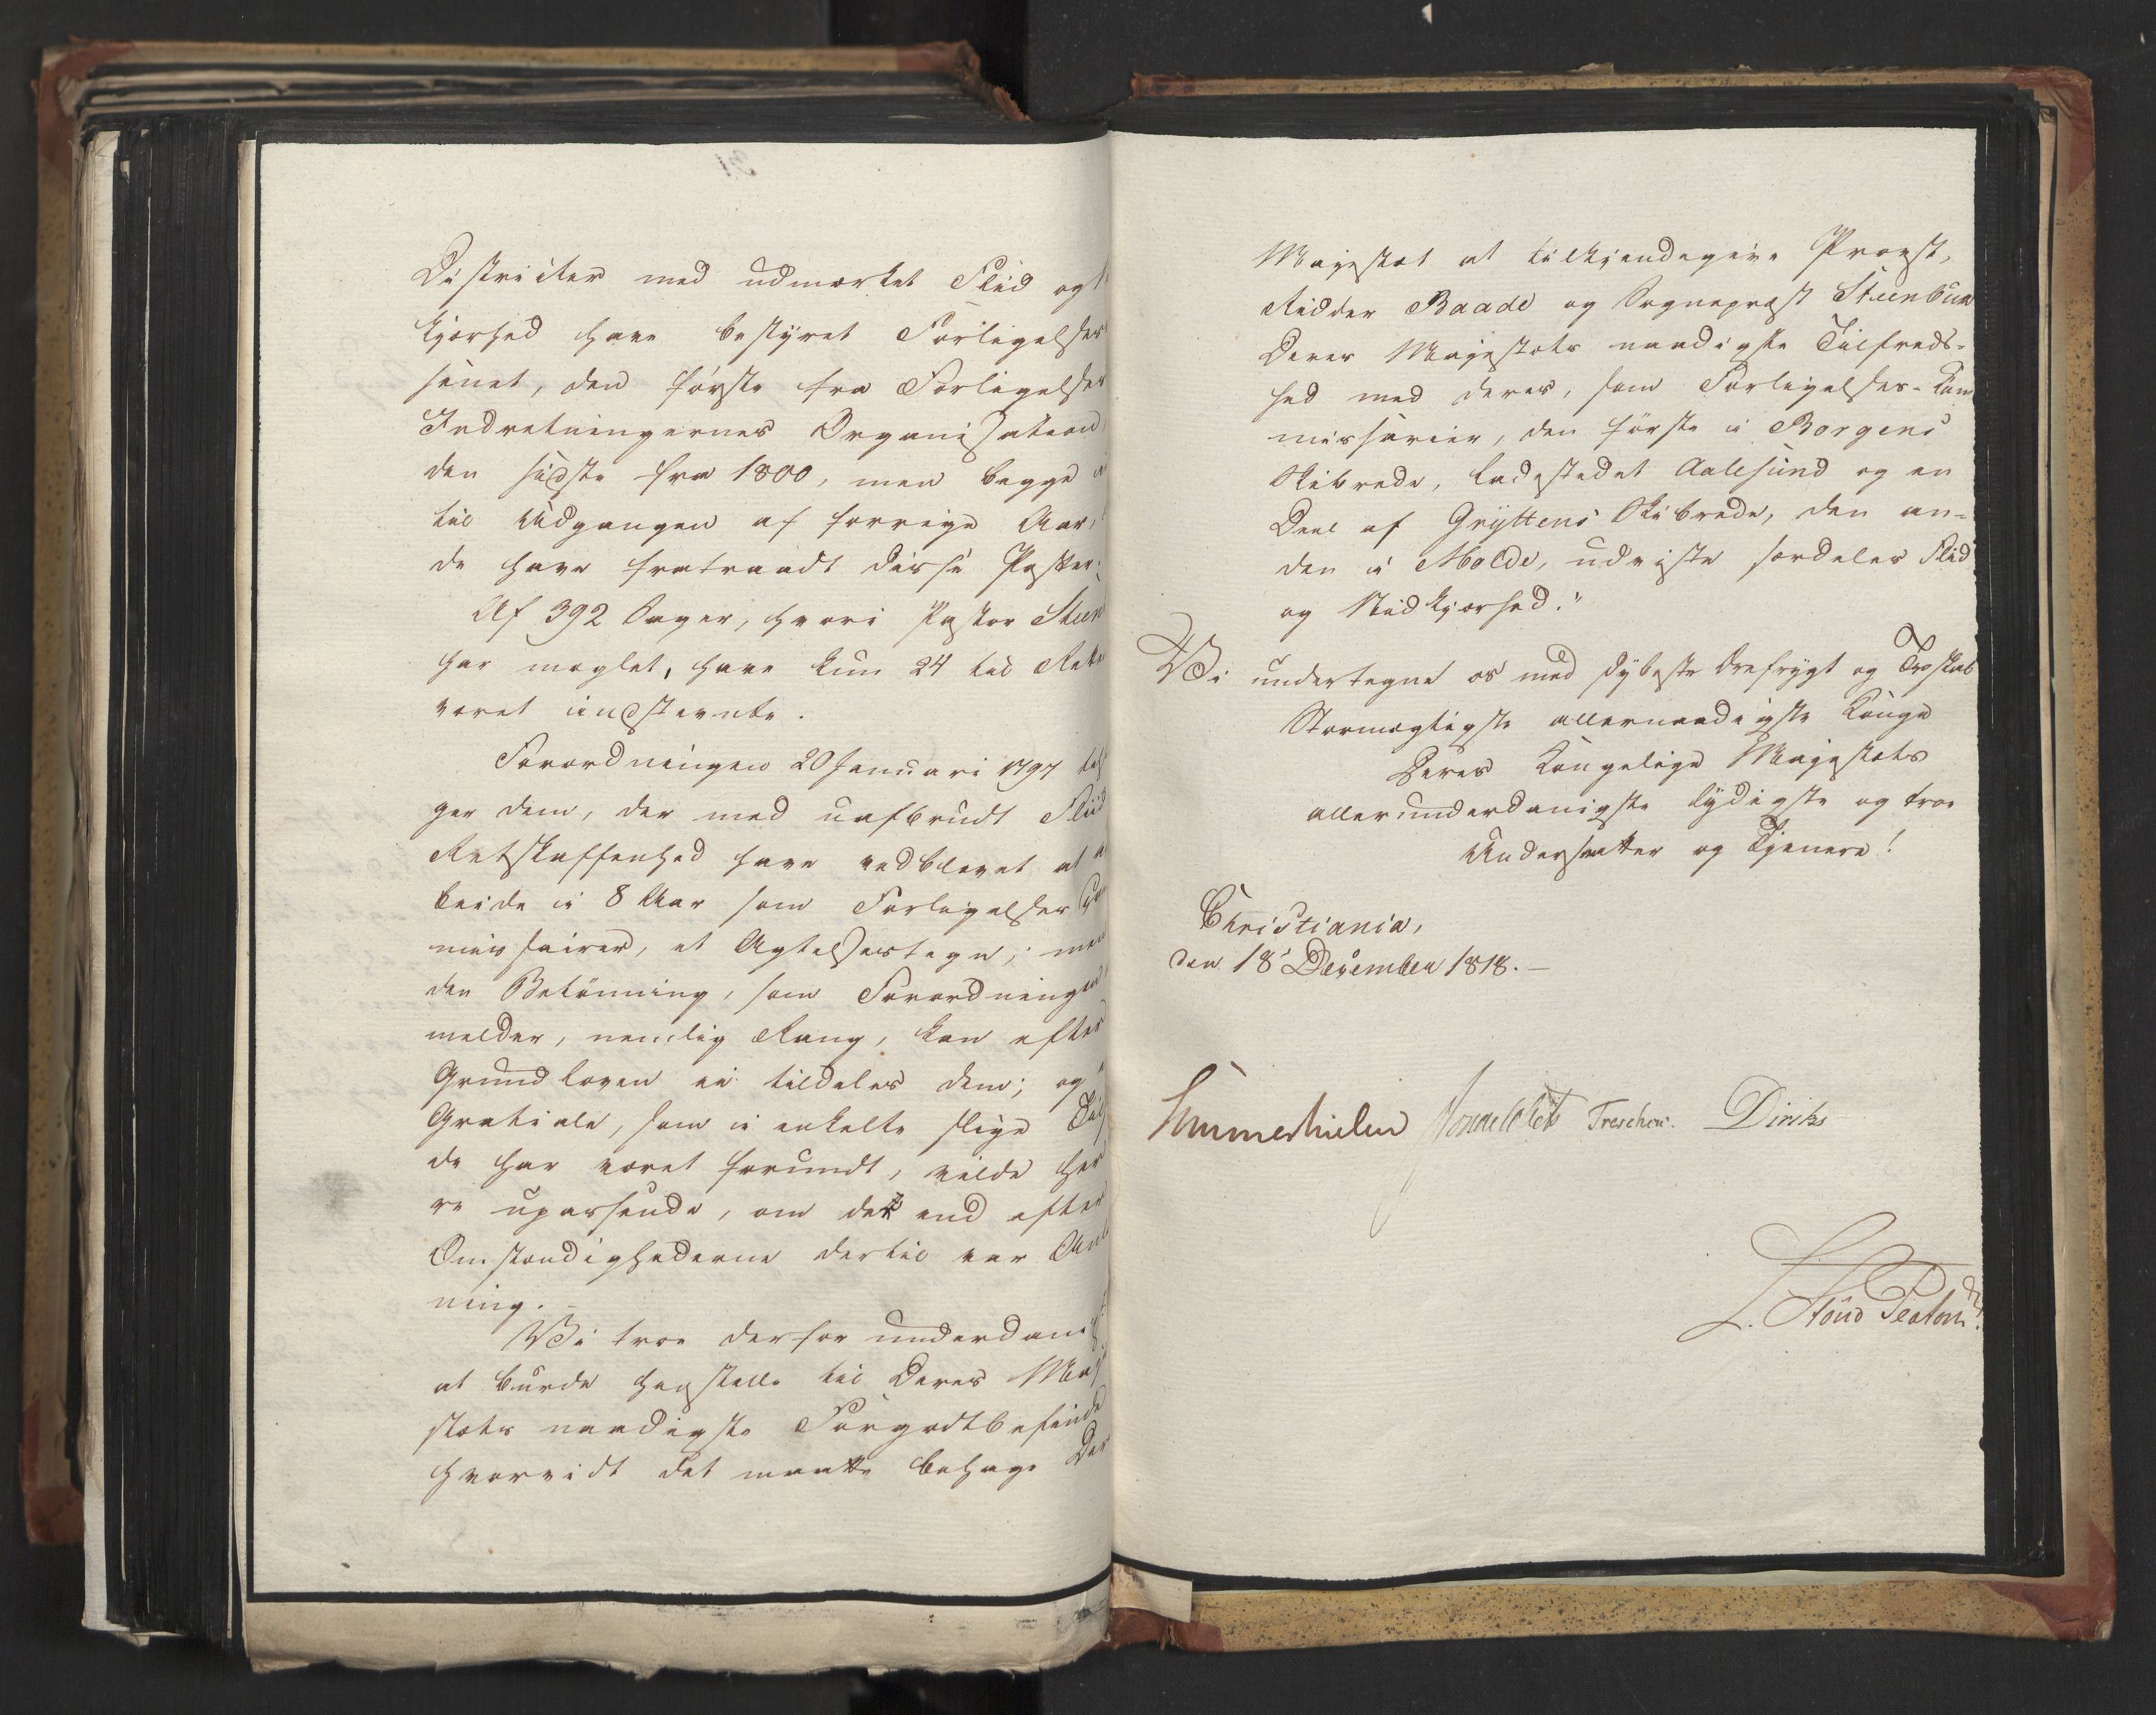 Districter med udmærket Fliid og
kjærhed have bestyret Forligelses
senet, den første fra Forligelses
Indretningernes Organisation
den sidste fra 1800, men begge
til Udgangen af forrige Aar,
de have fratraadt disse Poster.
Af 392 Sager, hvori Pastor Steen
har mæglet, have kun 24 til Rette
været indstevnte.
Forordningen 20 Januari 1797
ger dem, der med uafbrudt Fliid
Retskaffenhed have vedblevet at
beide i 8 Aar som Forligelses
missairer, et Agtelsestegn; men
den Belønning, som Forordningen
melder, nemlig Rang, kan efter
Grundloven ei tildeles dem; og
Gratiale, som i enkelte slige
de har været forundt, vilde her
re upassende, om der end efter
Omstændighederne dertil var
ning. -
Vi troe derfor underdanigst
at burde henstille til Deres Maje
stæts naadigste Forgodtbefinde
hvorvidt det maatte behage Der
Majestæt at tilkjendegive Provst,
Ridder Baade og Sognepræst Steenbuck
Deres Majestæts naadigste Tilfreds-
hed med deres, som Forligelses-Com
missærier, den første i Borgens
Skibrede, Ladestedet Aalesund og en
Deel af Gryttens Skibrede, den an-
den i Molde, udviiste særdeles Fliid
og Nidkjærhed."
Vi undertegne os med dybeste Ærefrygt og Troskab
Stormægtigste allernaadigste Konge
Deres Kongelige Majestæts
allerunderdanigste lydigste og troe
Undersaatter og Tjenere!
Christiania,
den 18 December 1818. -
Sommerhielm Treschow. Diriks
L. Stoud Platou